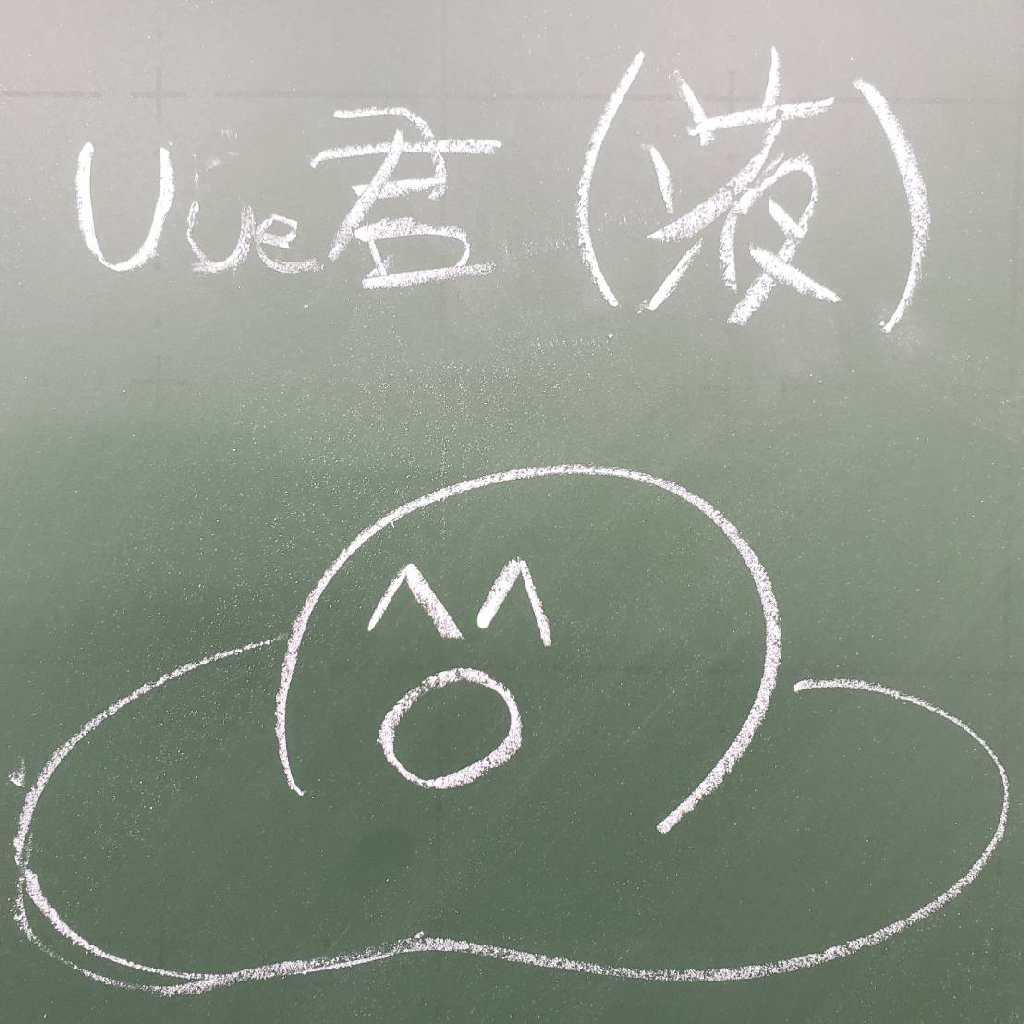 Uue君(液)